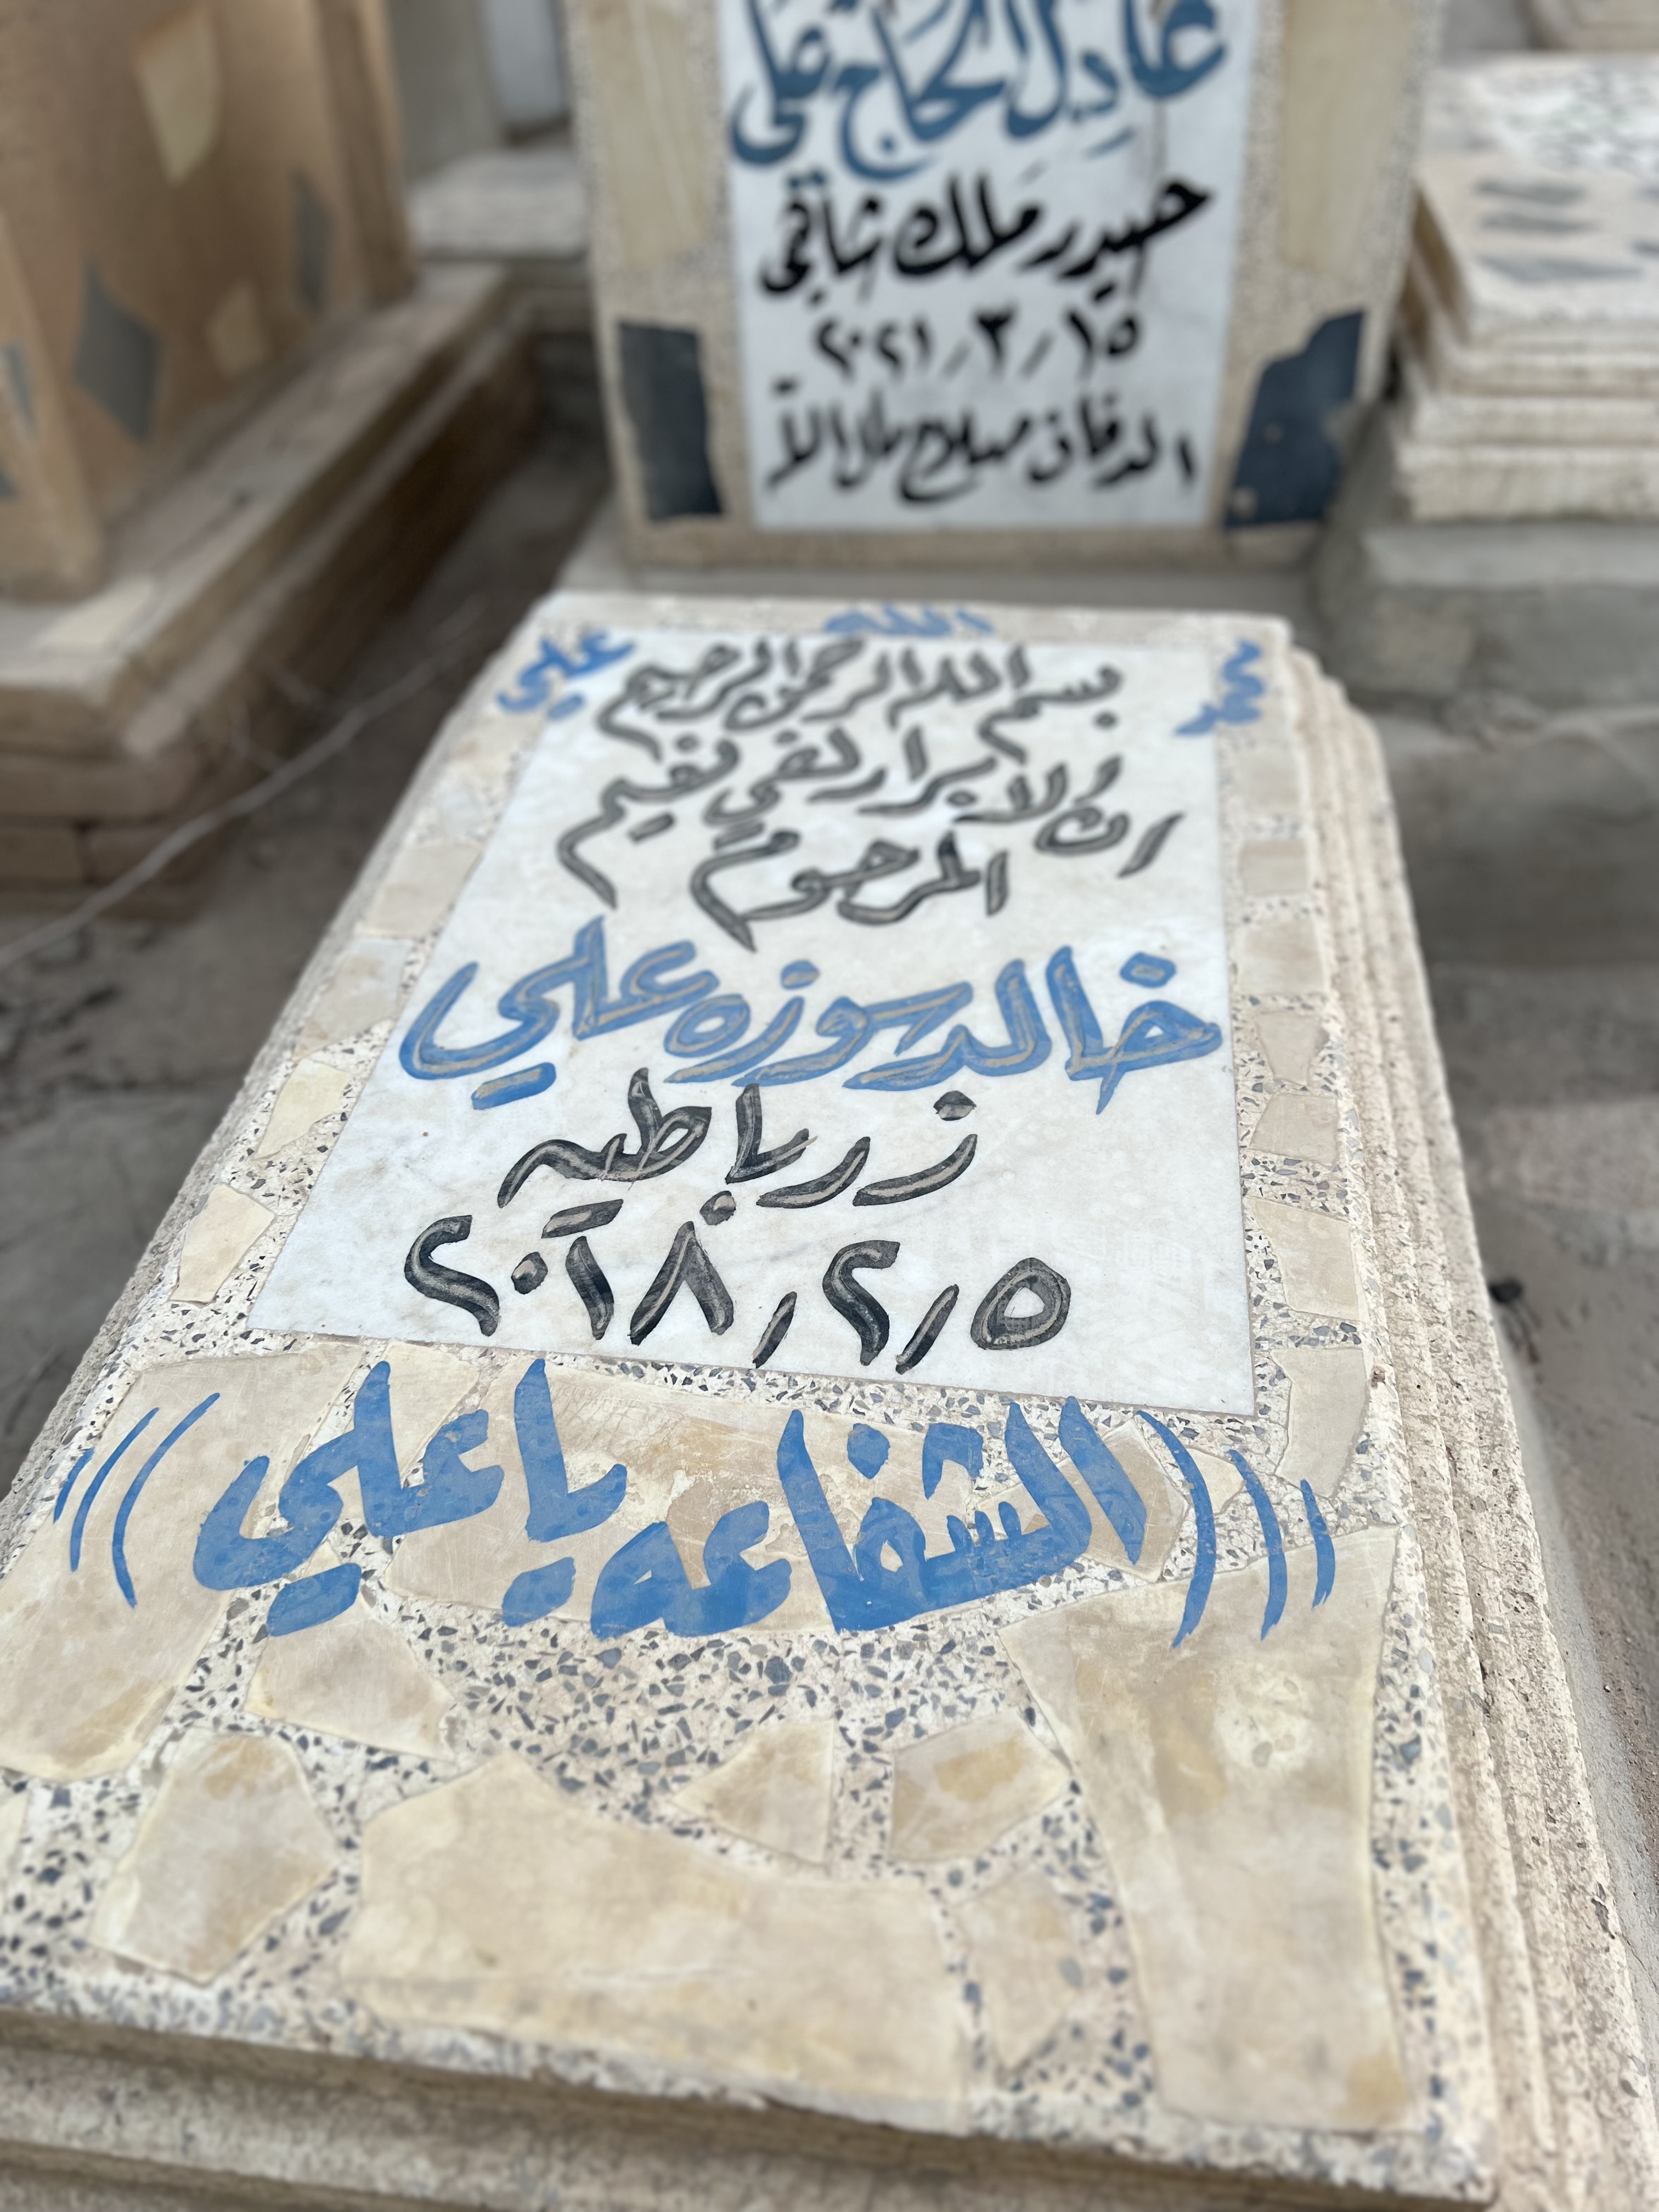 عادل الحاج علي
حيدر ملك شاقي
٢٠٢١/٣/١٥
الدفان صباح ملا الا
الله
محمد
علي
بسم الله الرحمن الرحيم
ان الابرار لفي نعيم
المرحوم
خالد سوزه علي
زرباطيه
٢٠١٨/٢/٥
(((الشفاعه ياعلي)))